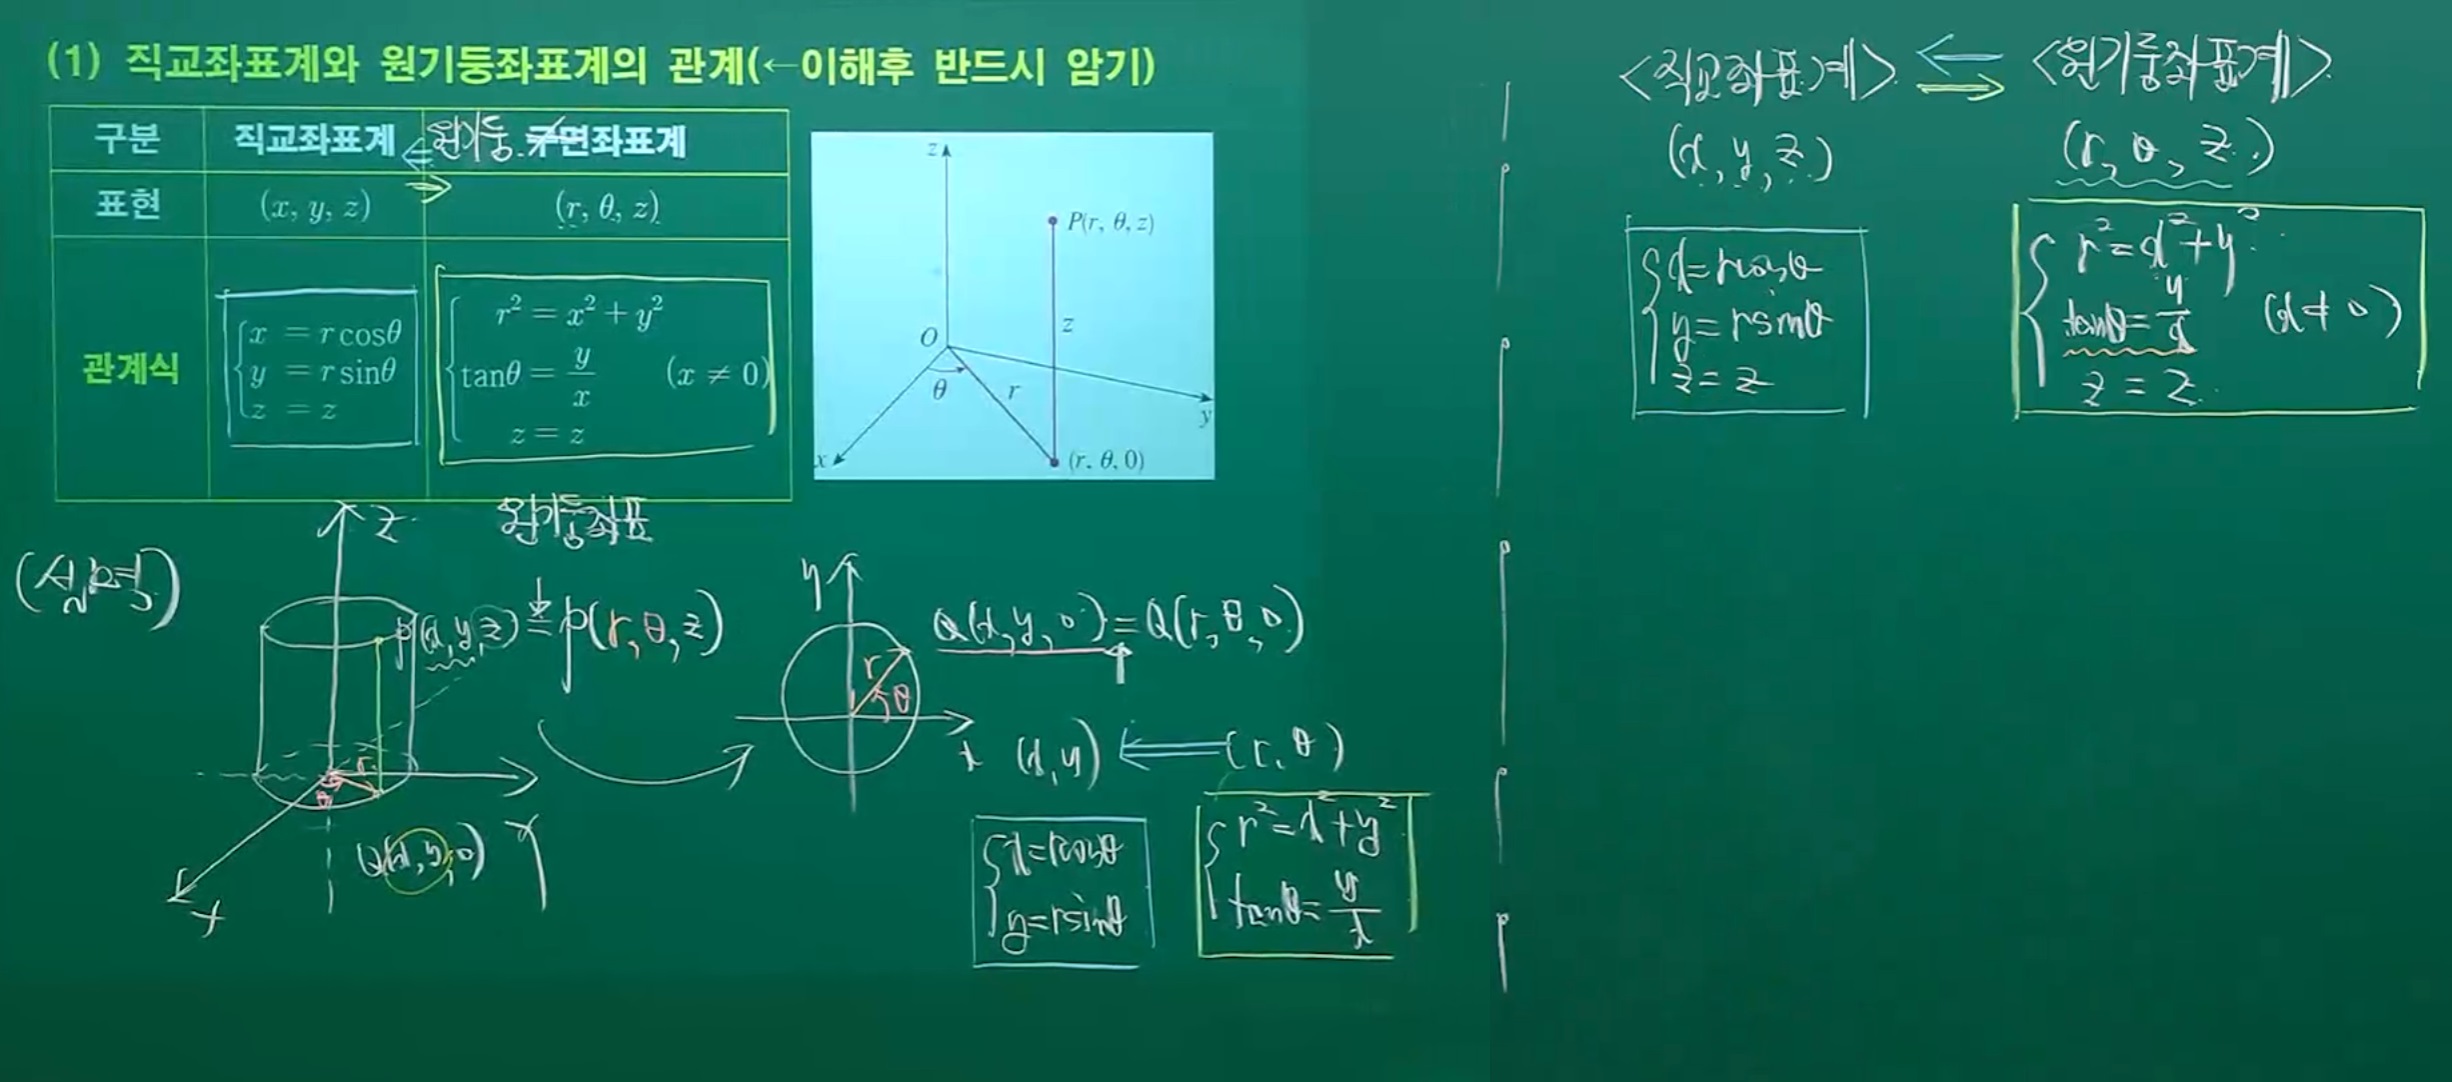 (1) 직교좌표계와 원기둥좌표계의 관계(←이해후 반드시 암기)
구분 직교좌표계 ⇐ 원기둥 구면좌표계
⇒
표현 (x, y, z) (r, θ, z)
관계식
x = rcosθ
y = rsinθ
z = z
r² = x² + y²
tanθ = y/x (x ≠ 0)
z = z
z
P(r, θ, z)
z
O
θ
r
y
x
(r, θ, 0)
원기둥좌표
(설명)
z
P(x, y, z) = P(r, θ, z)
r
θ
Q(x, y, 0)
y
x
y
r
θ
x
Q(x, y, 0) = Q(r, θ, 0)
(x, y) ⇐ (r, θ)
x=rcosθ
y=rsinθ
r²=x²+y²
tanθ=y/x
<직교좌표계> ⇐ ⇒ <원기둥좌표계>
(x, y, z) (r, θ, z)
x=rcosθ
y=rsinθ
z=z
r²=x²+y²
tanθ=y/x (x≠0)
z=z